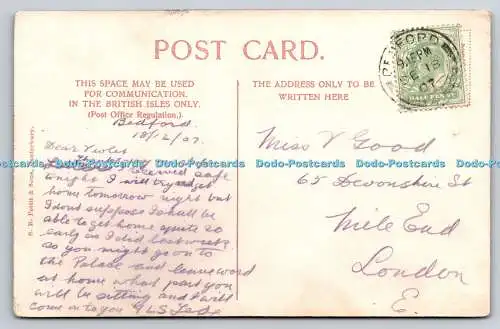 POST CARD.
THIS SPACE MAY BE USED
FOR COMMUNICATION.
IN THE BRITISH ISLES ONLY.
(Post Office Regulation.)
THE ADDRESS ONLY TO BE
WRITTEN HERE
BEDFORD
9. PM
DE 18
07
HALF PENNY
Bedford
18/12/07.
Dear Violet
received safe
tonight I will try and get
home tomorrow night but
I dont suppose I shall be
able to get home quite so
early as I did last week
so you might go to
the Palace and leave word
at home what part you
will be sitting and I will
come on to you
Miss V Good
65 Devonshire St
Mile End
London
E.
Db-Postcards Db-Postcards Db-Postcards Db-Postcards Db-Postcards Db-Postcards Db-Postcards